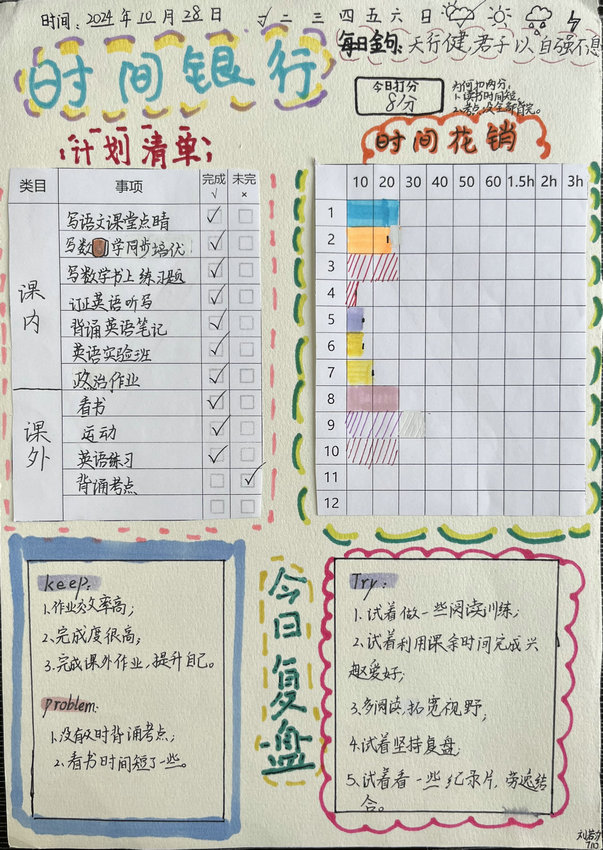 时间：2024年10月28日 √ 二 三 四 五 六 日
每日金句：天行健，君子以自强不息
时间银行
今日打分
8分
为何扣两分：
1.读书时间短
2.考点没全部背完。
计划清单
时间花销
类目 事项 完成 √ 未完 ×
课内
写语文课堂点睛 √
写数学同步培优 √
写数学书上练习题 √
订正英语听写 √
背诵英语笔记 √
英语实验班 √
政治作业 √
课外
看书 √
运动 √
英语练习 √
背诵考点 √
10 20 30 40 50 60 1.5h 2h 3h
1
2
3
4
5
6
7
8
9
10
11
12
keep：
1.作业效率高；
2.完成度很高；
3.完成课外作业，提升自己。
problem：
1.没有及时背诵考点；
2.看书时间短了一些。
今日复盘
Try：
1.试着做一些阅读训练；
2.试着利用课余时间完成兴
趣爱好；
3.多阅读，拓宽视野；
4.试着坚持复盘；
5.试着看一些纪录片，劳逸结
合。